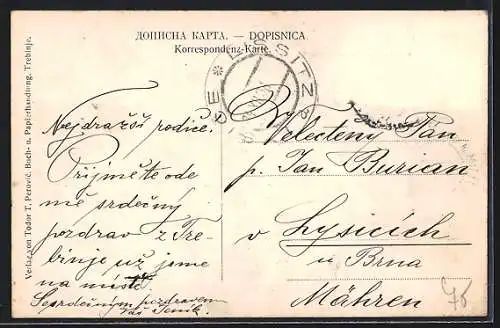 ДОПИСНА КАРТА. — DOPISNICA
Korrespondenz-Karte.
LISSITZ
Verlag von Todor T. Perović, Buch- u. Papierhandlung, Trebinje.
Nejdražší rodiče.
Přijměte ode
mě srdečný
pozdrav z Tre-
binje už jsme
na místě
Se srdečným pozdravem
váš
Velectěný Pan
p. Jan Burian
v Lysicích
u Brna
Mähren